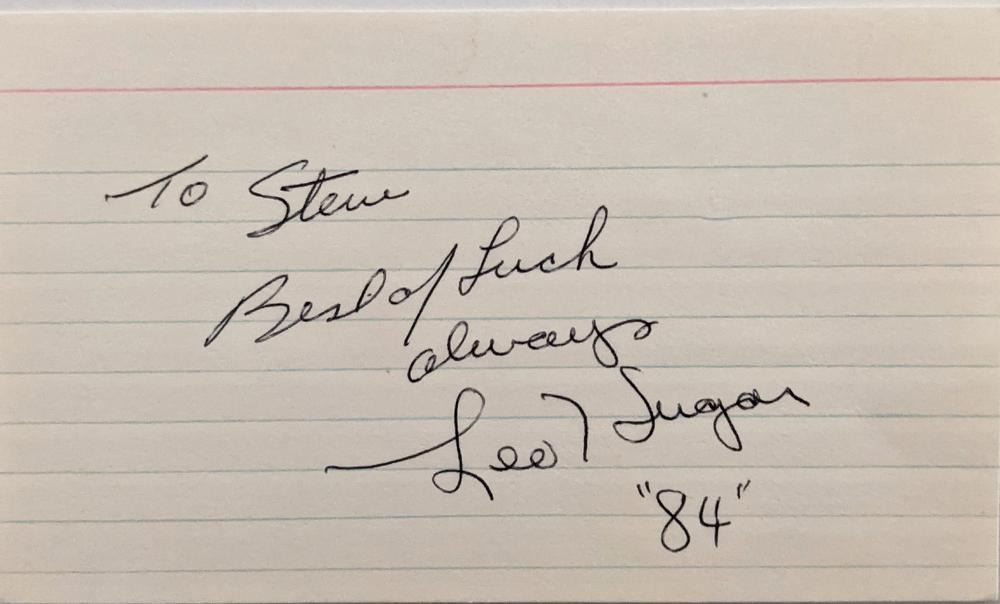 To Steve
Best of Luck
always
Leo T Sugar
"84"